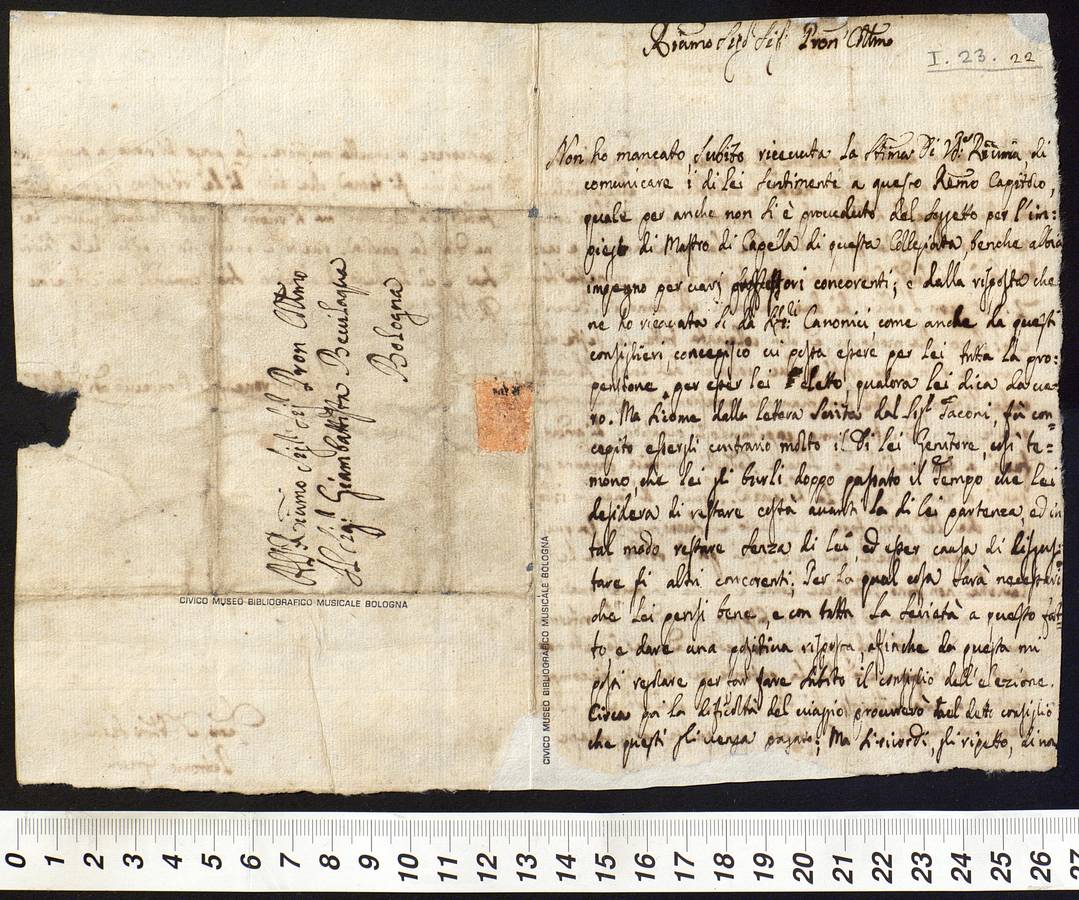 Pron Collmo
I. 23. 22
Non ho mancato subito ricevuta la stima di di
comunicare i di lei sentimenti a questo Remo Capitolo,
quale per anche non si è proveduto del soggetto per l'im:
piego di Mastro di Capella di questa Collegiata, benche abbia
impegno per varj professori concorenti; e dalla risposta che
ne ho ricavata si da Canonici, come anche da questi
consiglieri, concepisco vi possa essere per lei tutta la pro:
pensione, per esser lei eletto, qualora lei dica da ve:
ro. Ma siccome dalla lettera scritta dal Sigr Jaconi, fù con:
cepito essergli contrario molto il di lei Genitore, così te:=
mono, che lei gli burli doppo passato il tempo che lei
desidera di restare costà avanti la di lei partenza, ed in
tal modo restare senza di lei, ed esser causa di disgus:
tare gi altri concorenti; Per la qual cosa sarà necessario
che lei pensi bene, e con tutta la serietà a questo fat:
to e dare una positiva risposta, affinche da questa mi
possi restare per far fare subito il consiglio dell'elezione.
Circa poi la dificoltà del viaggio procurerò nel detto consiglio
che questi gli venga pagato; Ma si ricordi, gli ripetto, di no
Pron Collmo
Il Sigr Giambattista Bevilaqua
Bologna
CIVICO MUSEO BIBLIOGRAFICO MUSICALE BOLOGNA
CIVICO MUSEO BIBLIOGRAFICO MUSICALE BOLOGNA
0 1 2 3 4 5 6 7 8 9 10 11 12 13 14 15 16 17 18 19 20 21 22 23 24 25 26 27